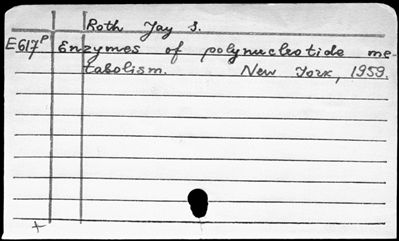 Roth Jay S.
E617P Enzymes of polynucleotide me-
tabolism. New York, 1959.
+